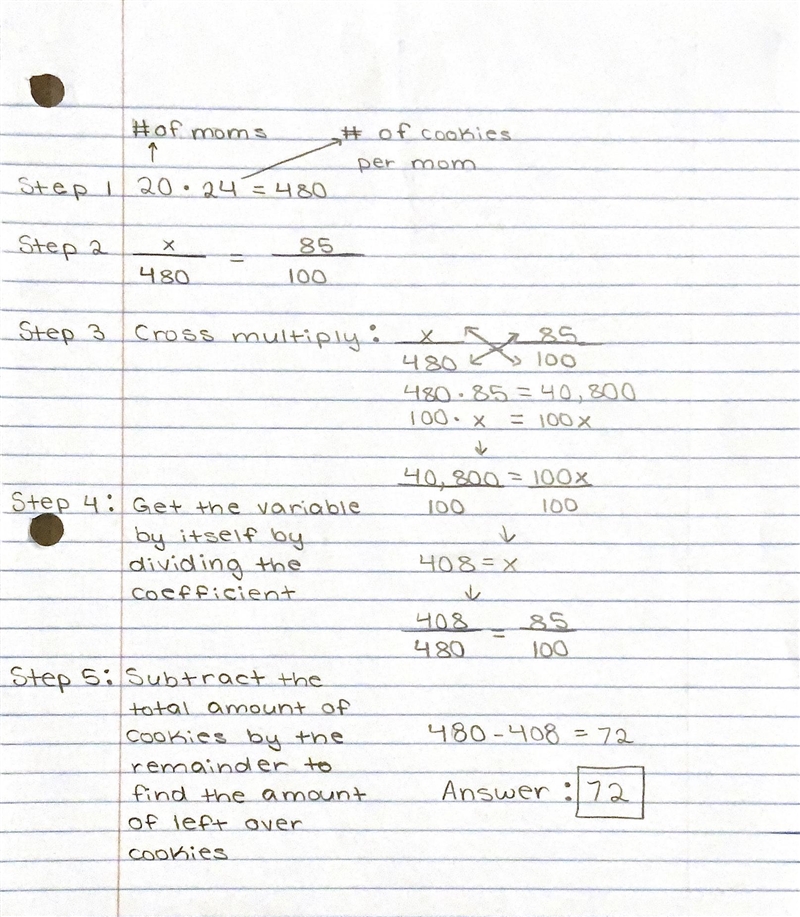 # of moms # of cookies
↑ per mom
Step 1 20 · 24 = 480
Step 2 x/480 = 85/100
Step 3 Cross multiply: x/480 85/100
480 · 85 = 40,800
100 · x = 100x
↓
40,800/100 = 100x/100
Step 4: Get the variable
by itself by ↓
dividing the 408 = x
coefficient ↓
408/480 = 85/100
Step 5: Subtract the
total amount of
cookies by the 480 - 408 = 72
remainder to
find the amount Answer: 72
of left over
cookies